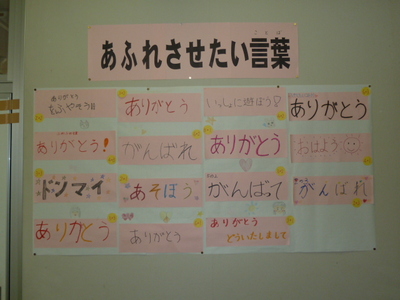 あふれさせたい言葉
ことば
ありがとう
ありがとう
いっしょに遊ぼう
ありがとう
ありがとう!
がんばれ
ありがとう
おはよう
ドンマイ
あそぼう
がんばって
がんばれ
ありがとう
ありがとう
ありがとう
どういたしまして